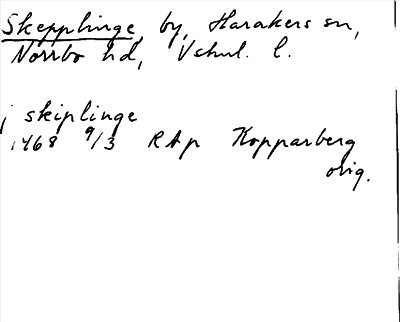 Skepplinge, by, Harakers sn,
Norrbo hd, Vstml. l.
j skiplinge
1468 9/3 RAp Kopparberg
orig.